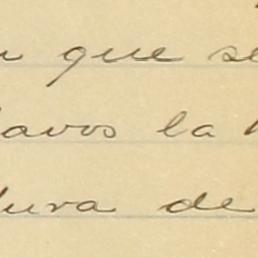 que se
avos la
dura de